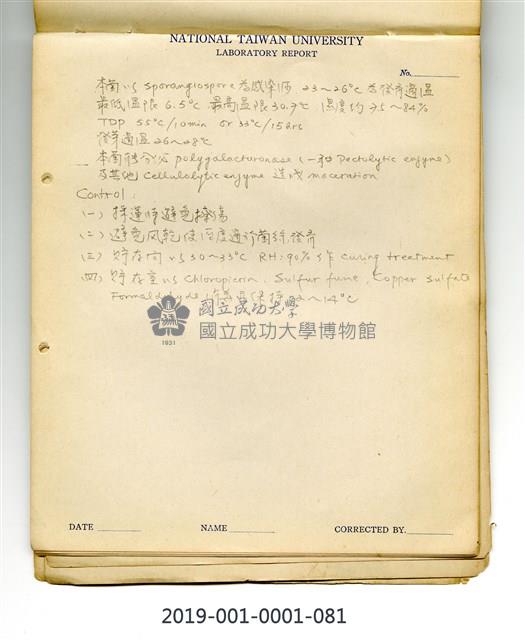 NATIONAL TAIWAN UNIVERSITY
LABORATORY REPORT
No.
本菌以 sporangiospore 為感染源 23~26°C 為發芽適溫
最低溫限 6.5°C 最高溫限 30.7°C 濕度約 75~84%
TDP 55°C/10min or 33°C/15hrs
發芽適溫 26~28°C
本菌能分泌 polygalacturonase (一種 Pectolytic enzyme)
及其他 Cellulolytic enzyme 造成 maceration
Control:
(一) 採運時避免擦傷
(二) 避免風乾使溼度適於菌絲發育
(三) 貯存前以30~33°C RH:90% 作 curing treatment
(四) 貯存室以 Chloropicrin、Sulfur fume、Copper sulfate
Formaldehyde 12~14°C
國立成功大學
國立成功大學博物館
1931
DATE NAME CORRECTED BY.
2019-001-0001-081